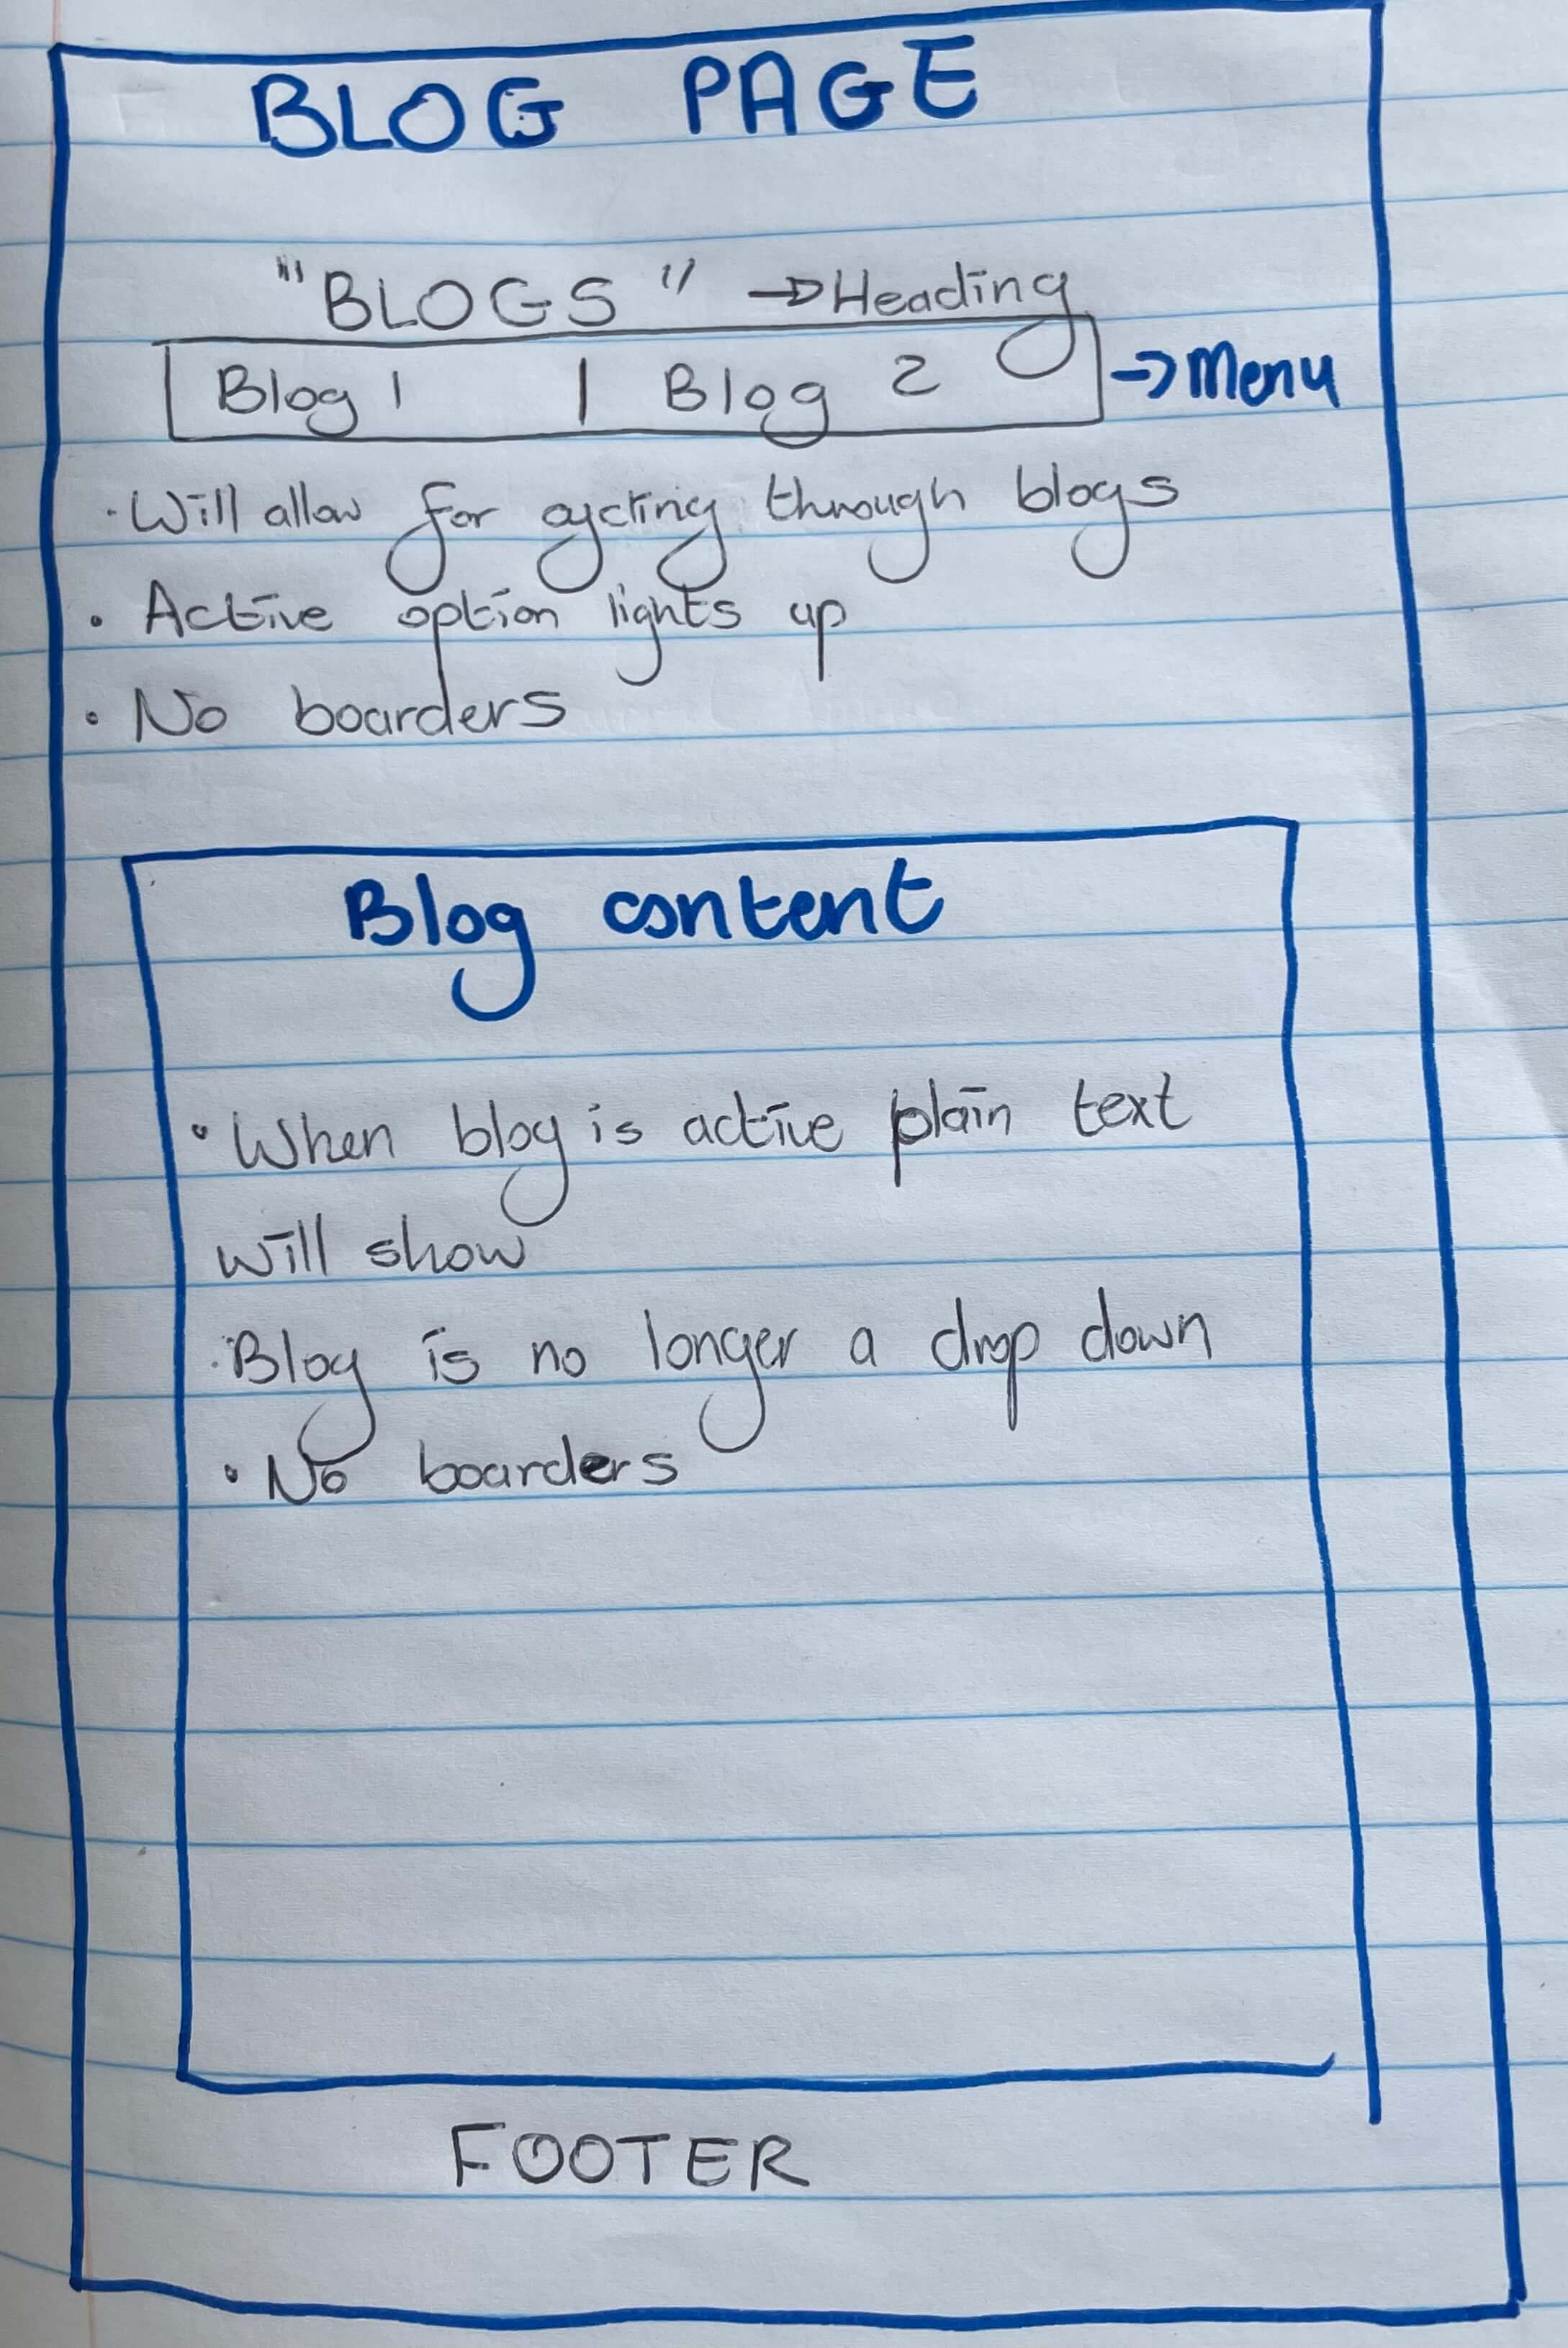 BLOG PAGE
"BLOGS" → Heading
Blog 1 | Blog 2 → Menu
· Will allow for cycling through blogs
· Active option lights up
· No boarders
Blog content
· When blog is active plain text
will show
· Blog is no longer a drop down
· No boarders
FOOTER